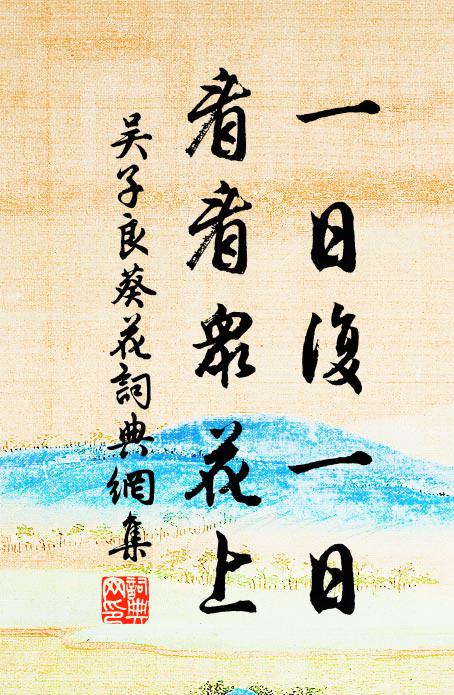 一日復一日
看看眾花上
吴子良葵花詞典網集
詞典网印